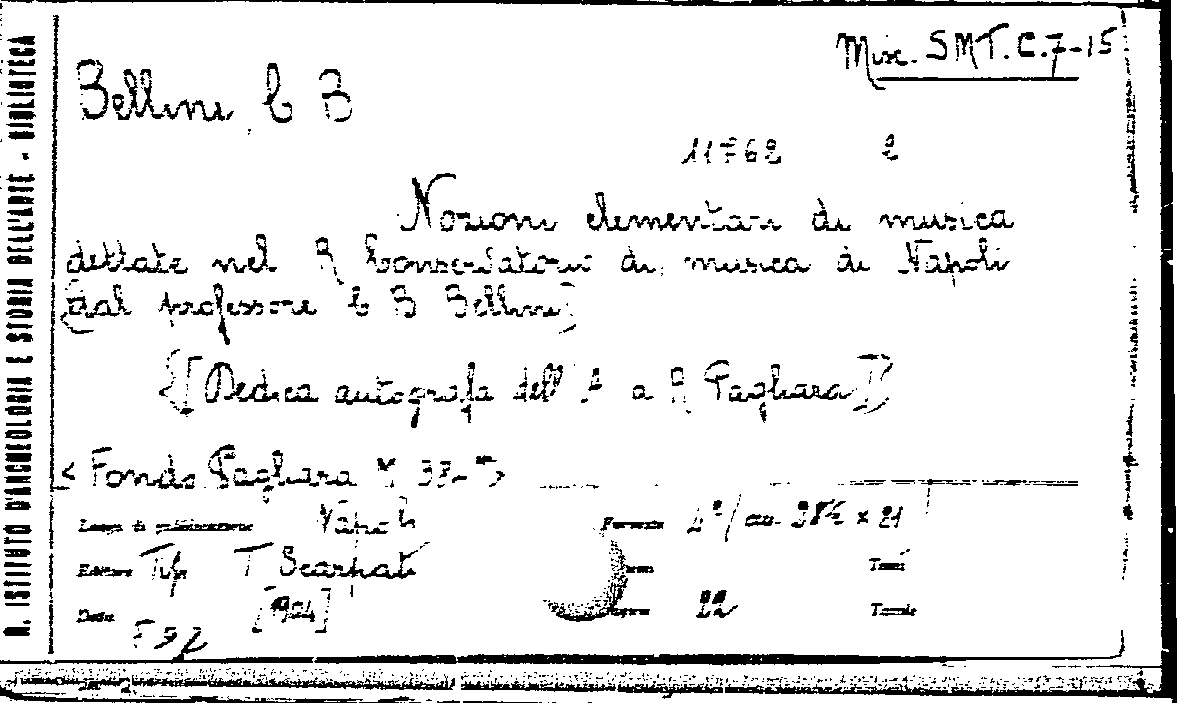 Misc. SMT.C.7-15
R. ISTITUTO D'ARCHEOLOGIA E STORIA DELL'ARTE - BIBLIOTECA
Bellini C B
11762 2
Nozioni elementari di musica
dettate nel R Conservatorio di musica di Napoli
dal professore C B Bellini
[Dedica autografa dell'A a R Pagliara]
< Fondo Pagliara
Luogo di pubblicazione Napoli Formato 4°/ 28½ x 21
Editore Tip T Scarpati Tomi
Data [1904] Pagine 22 Tavole